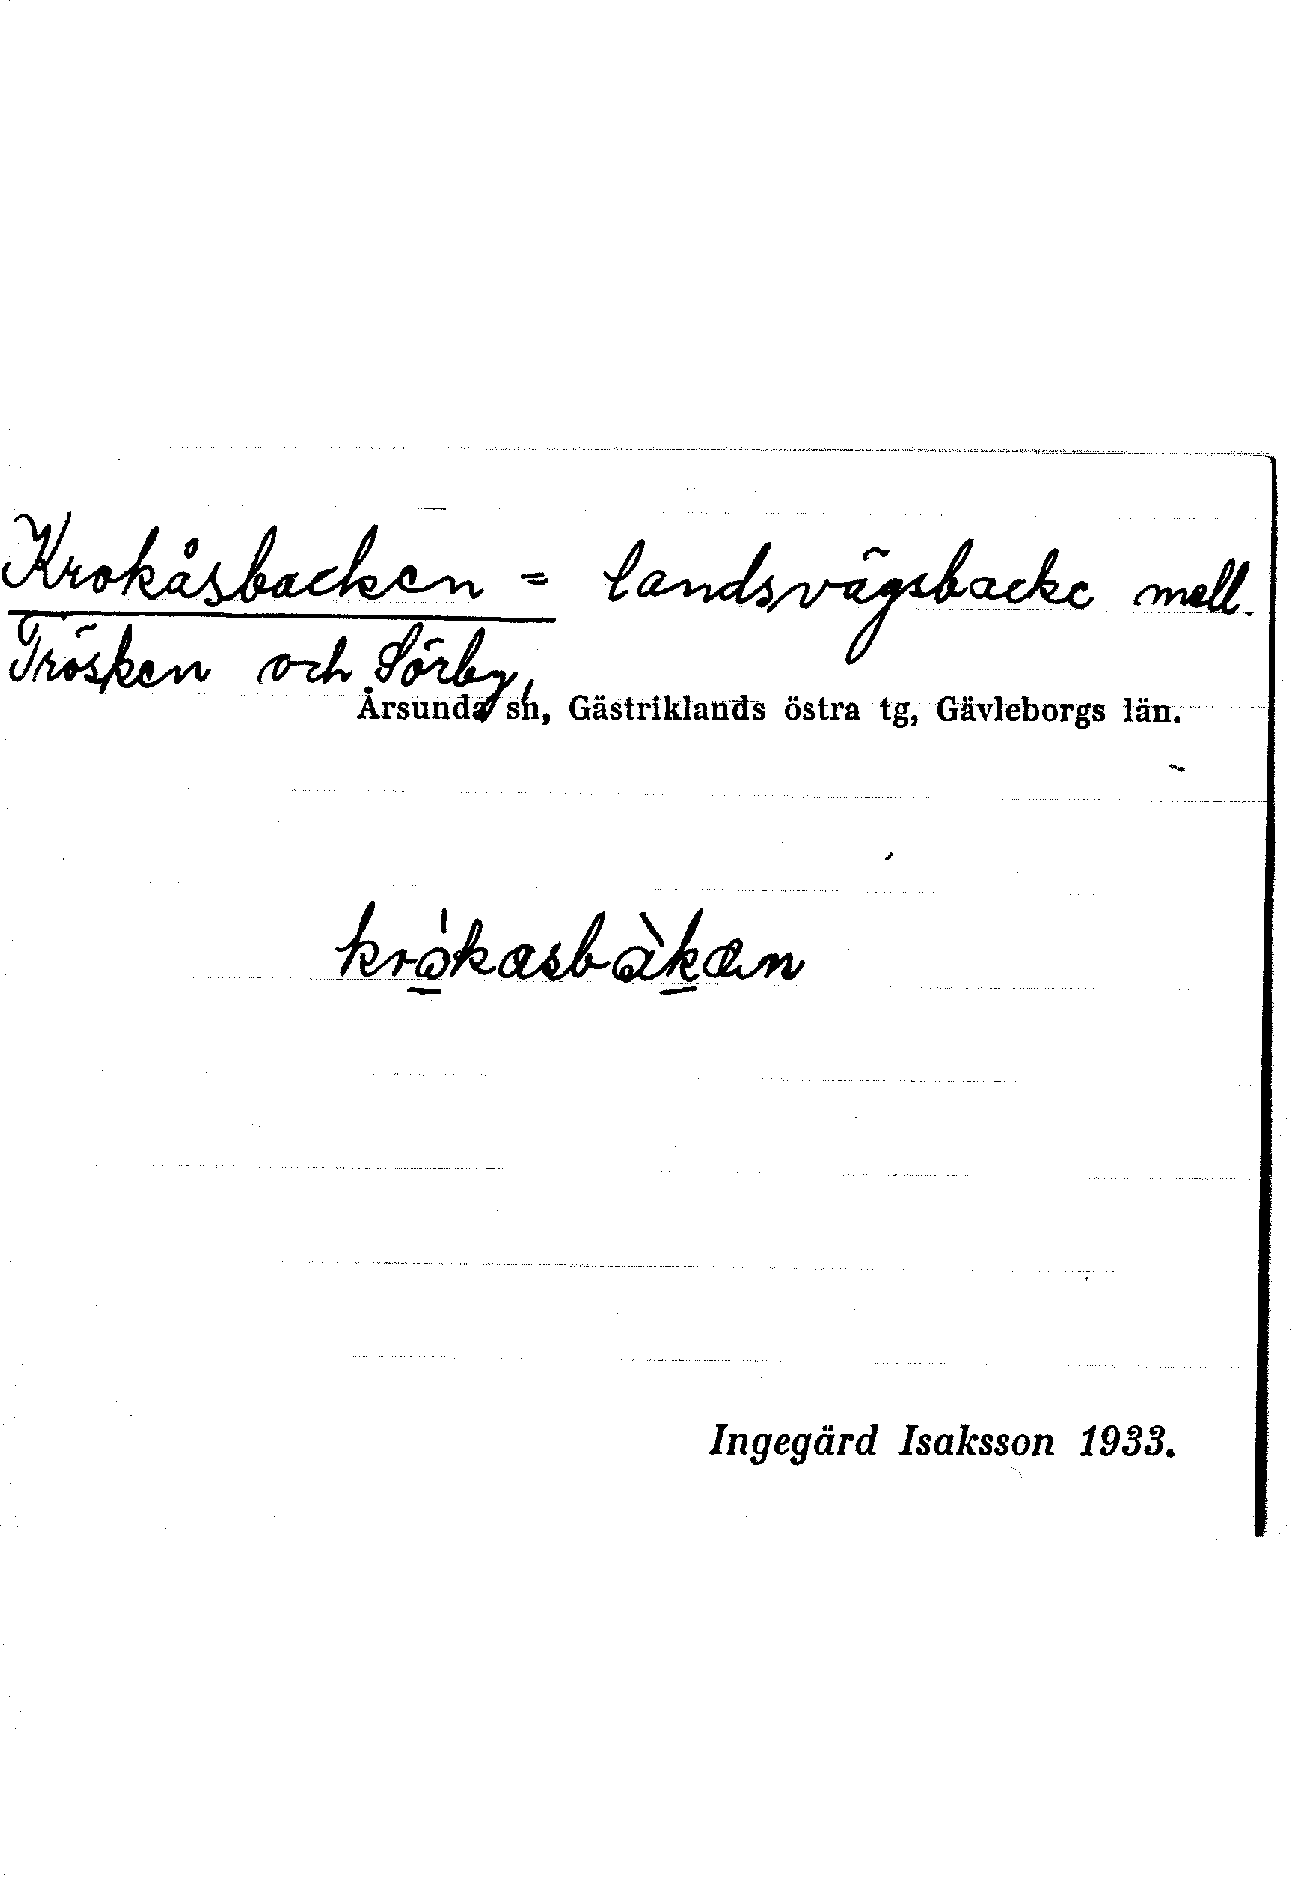 Krokåsbacken = landsvägsbacke mell.
Trösken och Sörby,
Årsunda sn, Gästriklands östra tg, Gävleborgs län.
Ingegärd Isaksson 1933.